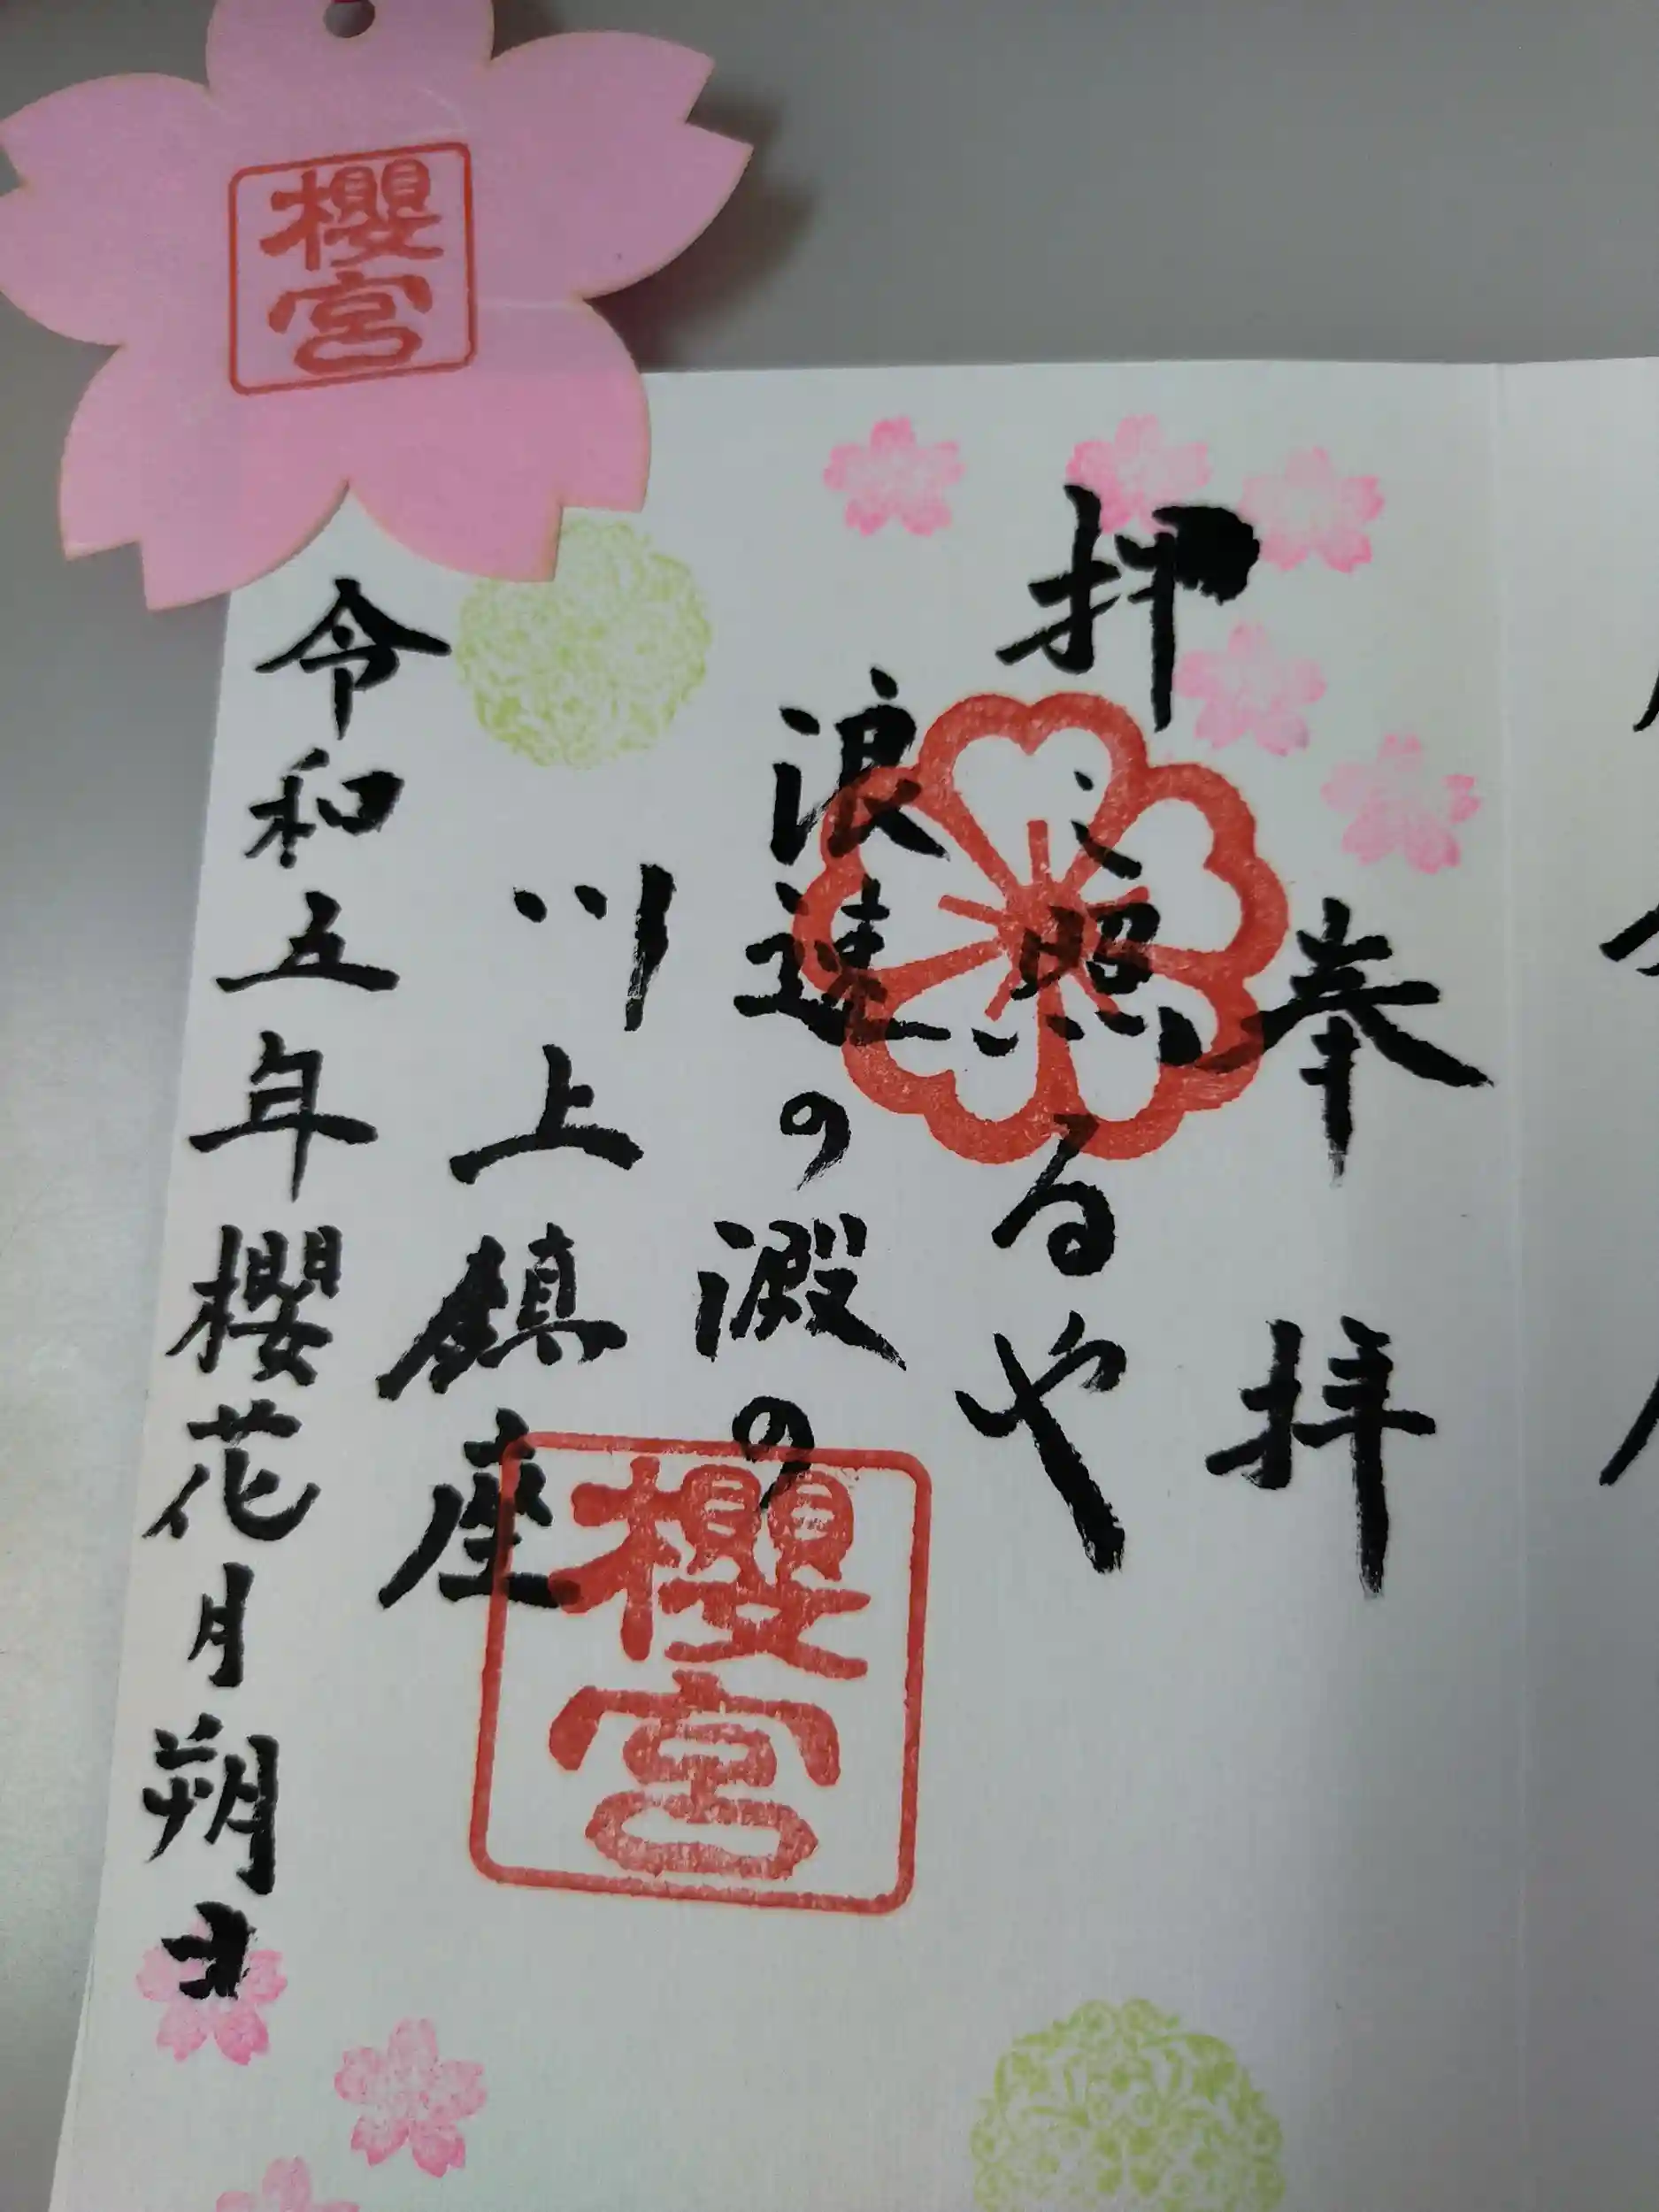 櫻宮
奉拝
押し照るや
浪速の澱の
川上鎮座
櫻宮
令和五年櫻花月朔